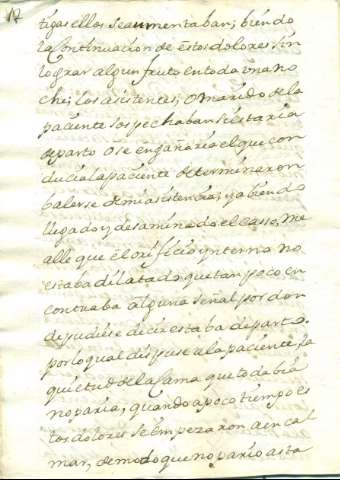 17
tigas ellos se aumentaban; biendo
la Continuacion de estos dolores sin
lograr algun fruto en toda una no
che; los asistentes; o marido de la
paciente sospechaban si estaria
de parto o se engañaria el que con
ducia la paciente determinaron
balerse de mi asistencia; y abiendo
llegado y desaminado el casso, me
alle que el orificio ynterno no
estaba dilatado que tan poco en
contraba alguna señal por don
de pudiese decir estaba de parto.
por lo qual dispuse a la paciente la
quietud de la Cama que todabia
no paria, quando a poco tiempo es
tos dolores se empezaron a en cal
mar, de modo que no pario asta